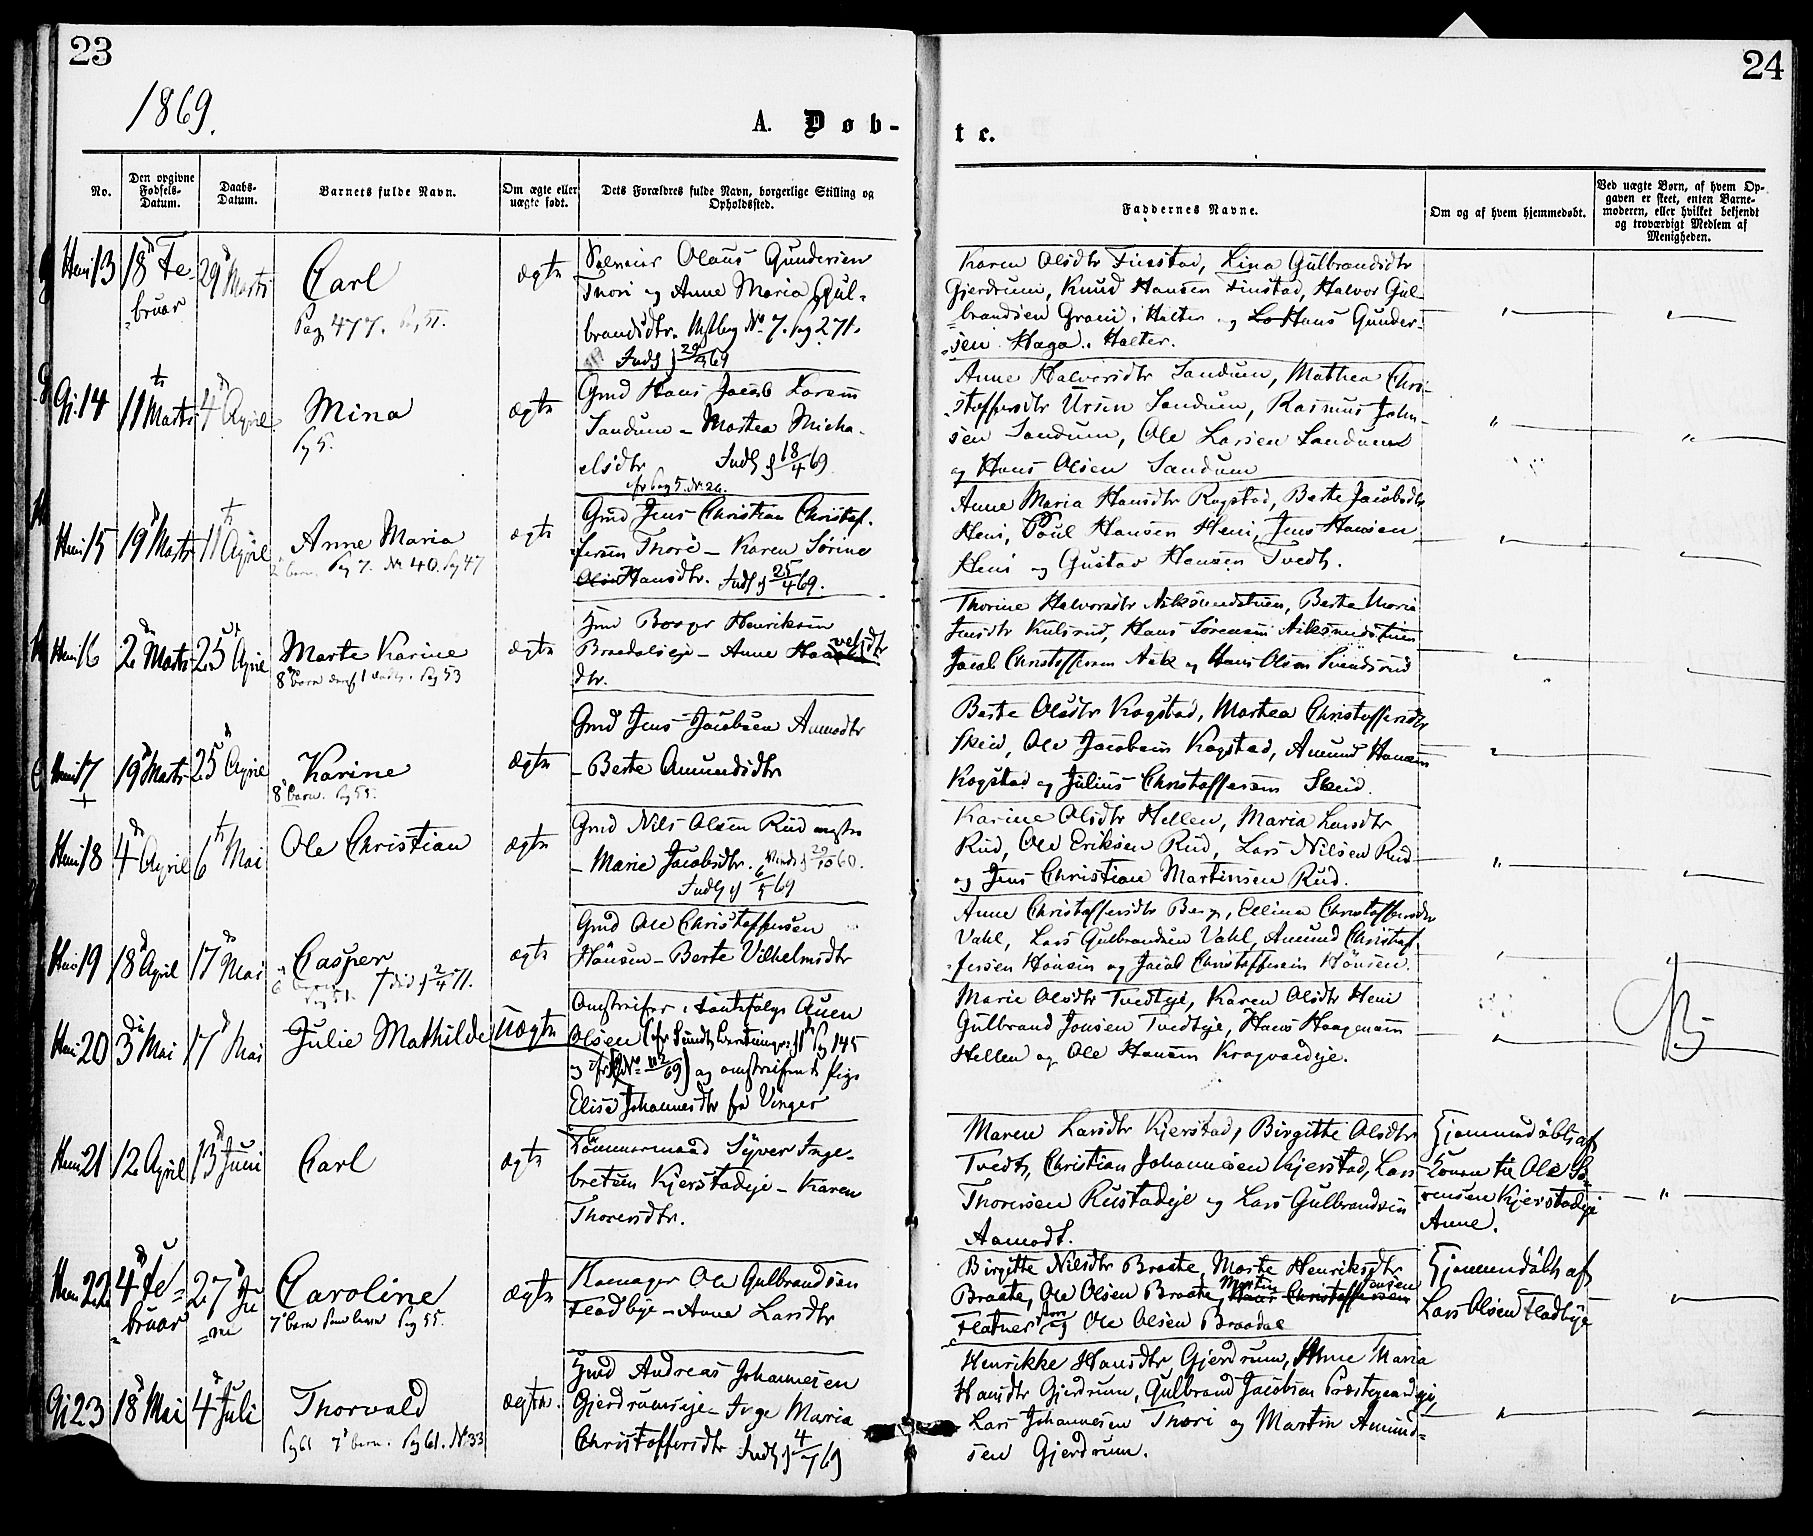 23
24
1869.
A. Døb-
te.
No.
Den opgivne Fødsels-Datum.
Daabs-Datum.
Barnets fulde Navn.
Om ægte eller uægte født.
Dets Forældres fulde Navn, borgerlige Stilling og Opholdssted.
Faddernes Navne.
Om og af hvem hjemmedøbt.
Ved uægte Børn, af hvem Op-
gaven er skeet, enten Barne-
moderen, eller hvilket bekjendt
og troværdigt Medlem af
Menigheden.
13
18d Fe-
bruar
29d Marts
Carl
Pag 477. Pag 51.
ægte
Olaus Gundersen
Thori og Anne Maria Gul-
brandsdtr. No 7. Pag 271.
Karen Olsdtr Finstad, Lina Gulbrandsdtr
Gjerdrum, Knud Hansen Finstad, Halvor Gul-
brandsen Grani, Holter og Hans Gunder-
sen Haga. Holter.
Gj. 14
11te Marts
4d April
Mina
Pg 5.
ægte
Gmd Hans Jacob Larsen
Sandum - Martea Micha-
elsdtr Indl 18/4 69.
cfr Pag 5. No 26.
Anne Halvorsdtr Sandum, Mathea Chri-
stoffersdtr Ursin Sandum, Rasmus John-
sen Sandum, Ole Larsen Sandum
og Hans Olsen Sandum
Heni 15
19d Marts
11te April
Anne Maria
Pag 7. No 40. Pag 47
ægte
Gmd Jens Christian Christof-
fersen Thori - Karen Sørine
Hansdtr. Indl 25/4 69.
Anne Maria Hansdtr Rogstad, Berte Jacobsdtr
Heni, Poul Hansen Heni, Jens Hansen
Heni og Gustav Hansen Tvedt.
Heni 16
2d Marts
25de April
Marte Karine
8de barn Pag 53
ægte
Henriksen
Braadaleje - Anne
dtr.
Thorine Halvorsdtr Asksmundstuen, Berte Maria
Jensdtr Kulsrud, Hans Sørensen
Jacob Christoffersen Ask og Hans Olsen Svendsrud
Heni 17
19d Marts
25d April
Karine
8de barn. Pag 55.
ægte
Gmd Jens Jacobsen Aamodt
- Berte Amundsdtr
Berte Olsdtr Kogstad, Martea Christoffersdtr
Skeid, Ole Jacobsen Kogstad, Amund Hansen
Kogstad og Julius Christoffersen Skeid.
Heni 18
4d April
6te Mai
Ole Christian
ægte
Gmd Nils Olsen Rud
- Marie Jacobsdtr.
Indl 6/5 69
Karine Olsdtr Hellen, Maria Larsdtr
Rud, Ole Eriksen Rud, Lars Nilsen Rud
og Jens Christian Martinsen Rud.
Heni 19
18d April
17de Mai
Casper
6te barn
ægte
Gmd Ole Christoffersen
Hönsen - Berte Vilhelmsdtr
Anne Christoffersdtr Berg, Ellina Christoffersdtr
Vahl, Lars Gulbrandsen Vahl, Amund Christof-
fersen Hönsen og Jacob Christoffersen Hönsen.
Heni 20
3die Mai
17d Mai
Julie Mathilde
Uægte
Omstreifer i Tantefølge Auen
Olsen
Pag 145
og omstreifende Pige
Elise Johannesdtr fra Vinger
Marie Olsdtr Tvedteje, Karen Olsdtr Heni
Gulbrand Jonsen Tvedteje, Hans Haagensen
Hellen og Ole Hansen Kragvadeje.
Heni 21
12 April
13d Juni
Carl
ægte
Tömmermand Syver Inge-
bretsen Kjerstadeje - Karen
Thorersdtr.
Maren Larsdtr Kjerstad, Birgitte Olsdtr
Tvedt, Christian Johannesen Kjerstad, Lars
Thoresen Rustadeje og Lars Gulbrandsen
Aamodt.
Hjemmedøbt af
Konen til Ole Sö-
rensen Kjerstadeje
Anne.
Heni 22
4d Fe-
bruar
27d Ju-
ni
Caroline
7de barn Pag 55.
ægte
Ole Gulbrandsen
Fladbye - Anne Larsdtr
Birgitte Nilsdtr Braate, Marte Henriksdtr
Braate, Ole Olsen Braate, Martin Hansen
Flatner og Ole Olsen Braadal
Hjemmedøbt af
Lars Olsen Fladbye
Gj 23
18d Mai
4de Juli
Thorvald
Pag 61 7de barn. Pag 61. No 33
ægte.
Andreas Johannesen
Gjerdrumseje - Inge Maria
Christoffersdtr Indl 4/7 69
Henrikke Hansdtr Gjerdrum, Anne Maria
Hansdtr Gjerdrum, Gulbrand Jacobsen Præstegaardeje,
Lars Johannesen Thori og Martin Amund-
sen Gjerdrum.